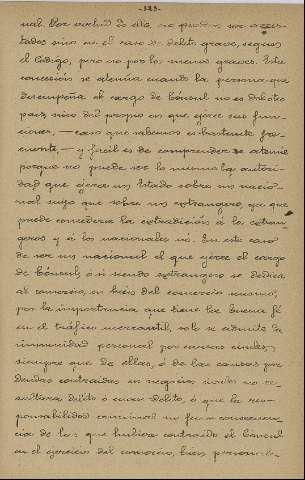 -323-
nal. Por virtud de ella, no pueden ser arres-
tados sino en el caso de delito grave, segun
el Código, pero no por los menos graves. Esta
concesión se atenúa cuando la persona que
desempeña el cargo de Cónsul no es del otro
pais sino del propio en que ejerce sus fun-
ciones, — caso que sabemos es bastante fre-
cuente, — y fácil es de comprender se atenúe
porque no puede ser lo mismo la autori-
dad que ejerce un Estado sobre un nacio-
nal suyo que sobre un extrangero, ya que
puede concederse la extradición á los extran-
geros y á los nacionales nó. En este caso
de ser un nacional el que ejerce el cargo
de Cónsul, ó si siendo extrangero se dedica
al comercio, en bien del comercio mismo,
por la importancia que tiene la buena fé
en el tráfico mercantil, solo se admite la
inmunidad personal por causas civiles,
siempre que de ellas, ó de las causas por
deudas contraidas en negocios civiles no re-
sultara delito ó cuasi-delito, ó que la res-
ponsabilidad criminal no fuera consecuen-
cia de las que hubiera contraido el Cónsul
en el ejercicio del comercio, bien personal-